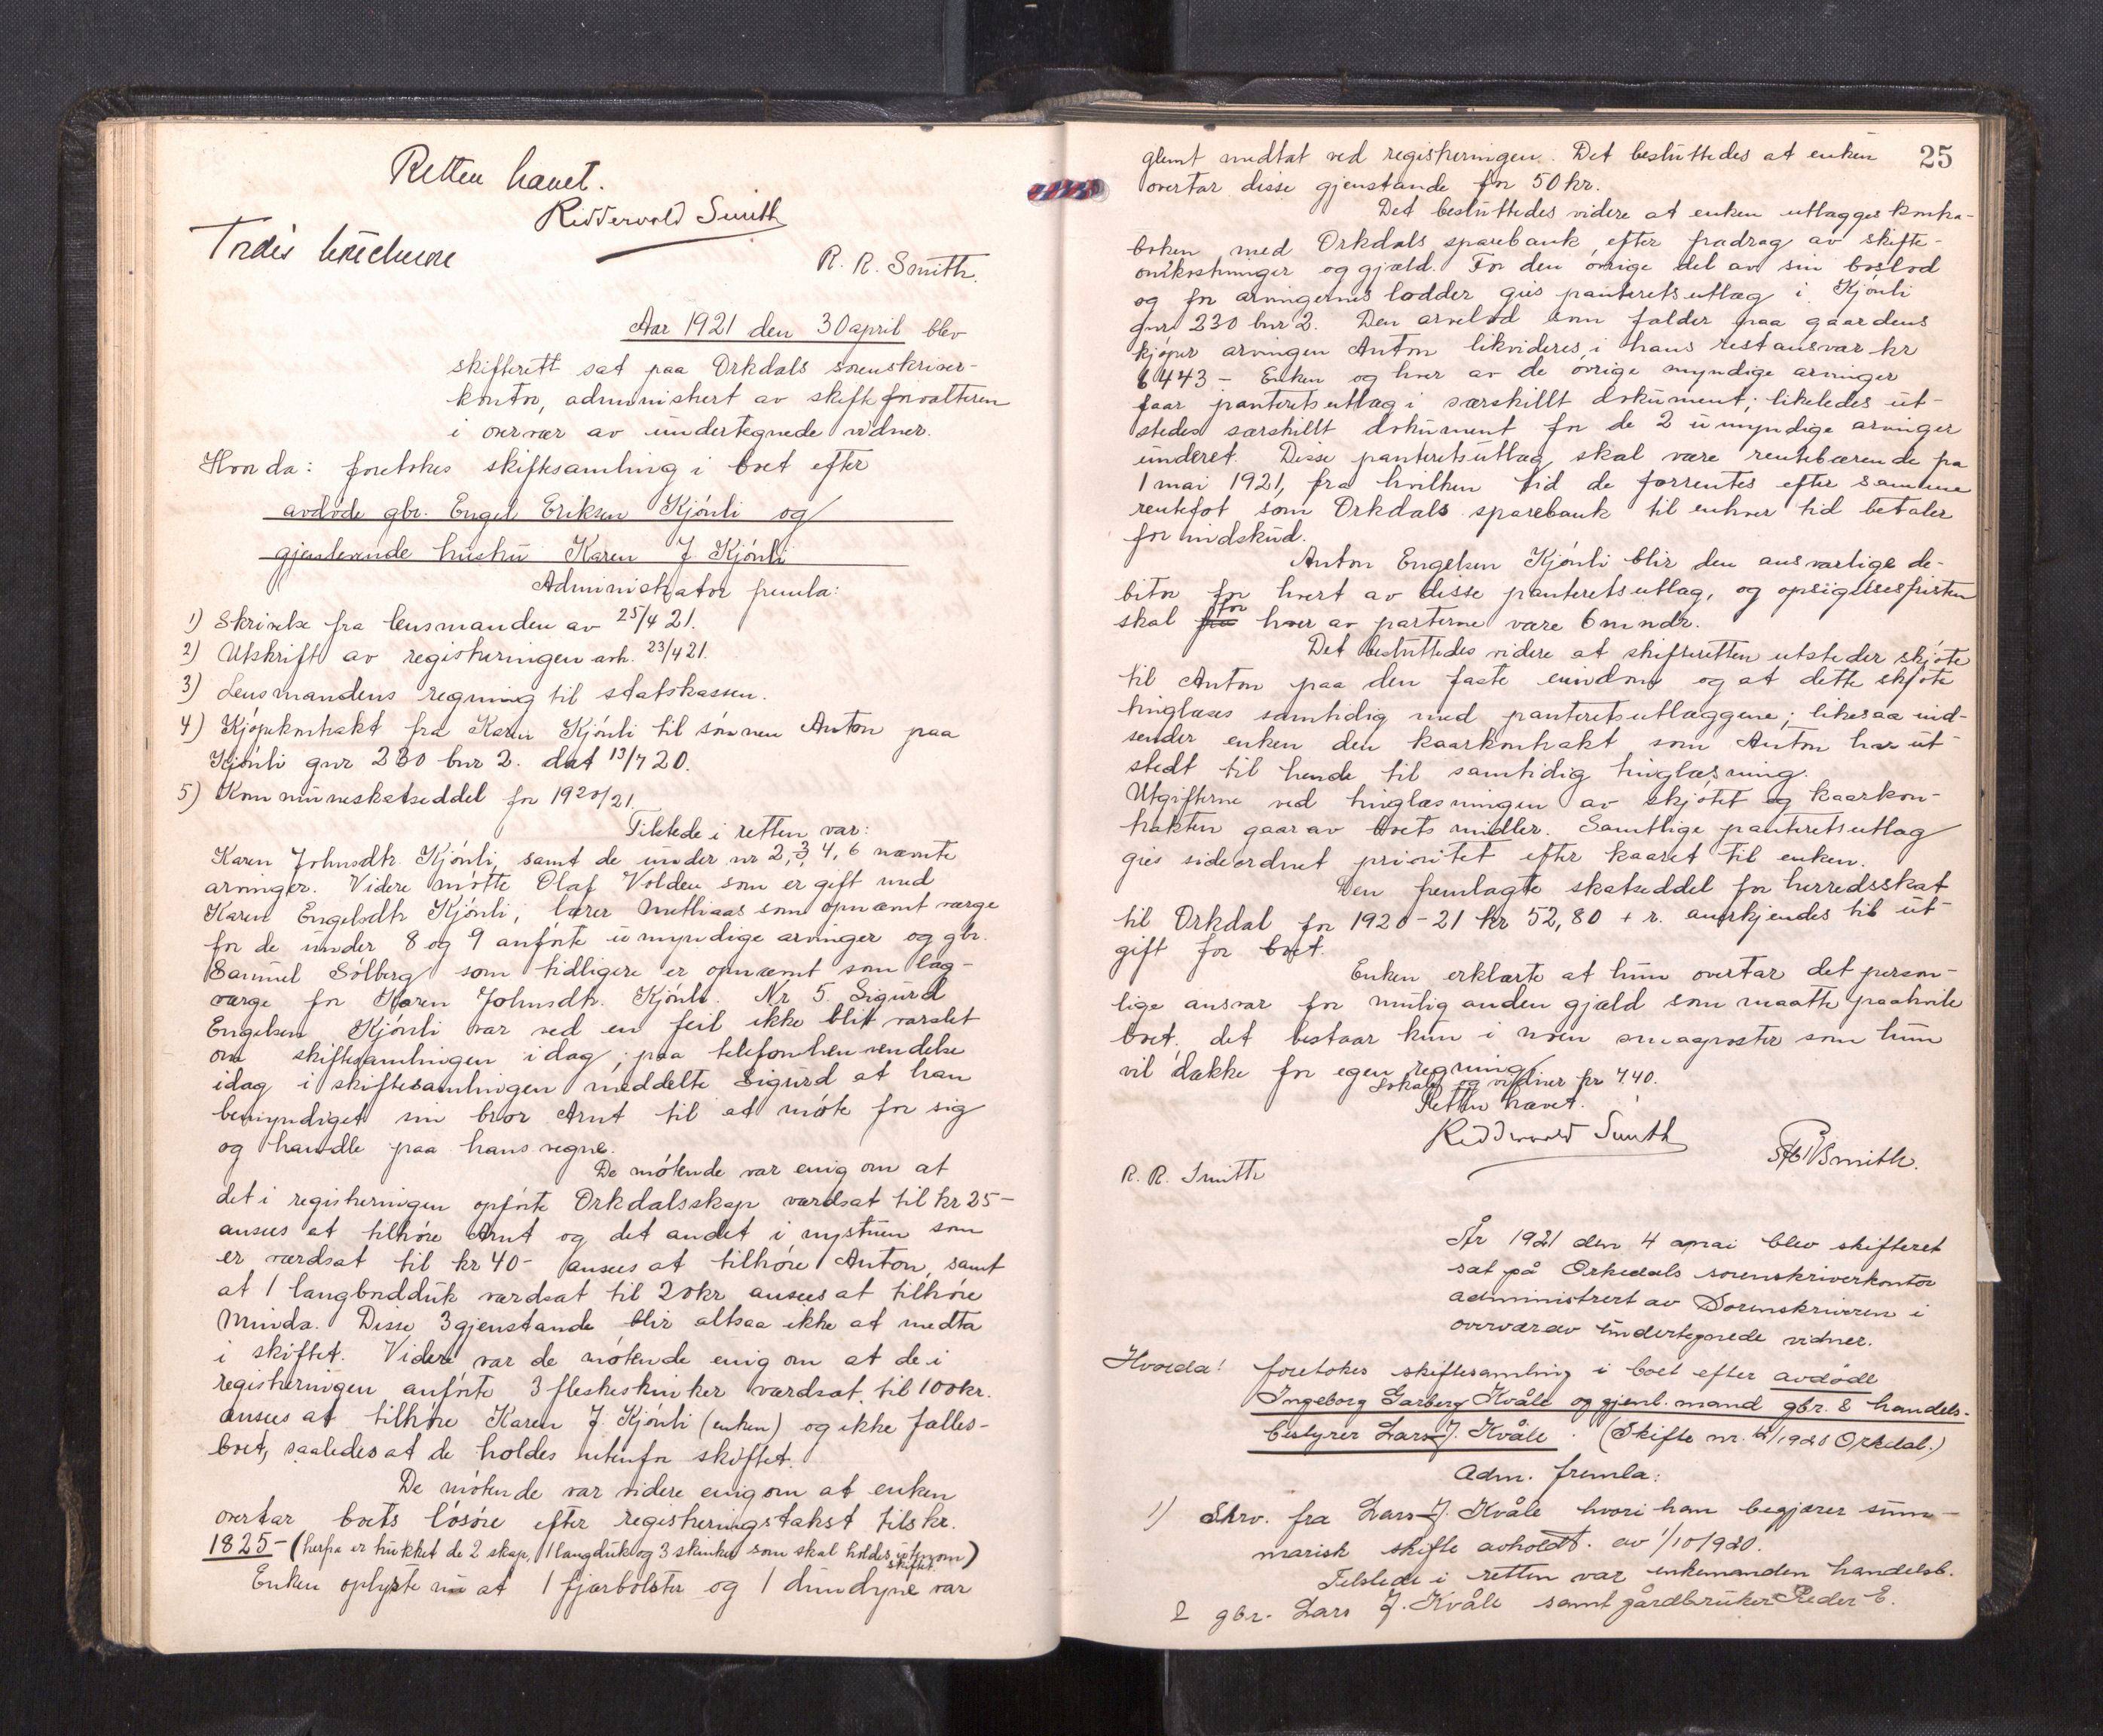 Retten hævet.
Ridderwold Smith
R. R. Smith.
Aar 1921 den 30 april blev
skifterett sat paa Orkdals sorenskriver-
kontor, administrert av skifteforvalteren
i overvær av undertegnede vidner.
Hvorda: foretokes skiftesamling i boet efter
avdøde gbr. Engel Eriksen Kjönli og
gjenlevende hustru Karen J. Kjönli
Administrator fremla:
1) Skrivelse fra lensmanden av 25/4 21.
2) Utskrift av registreringen avh. 23/4 21.
3) Lensmandens regning til statskassen.
4) Kjöpekontrakt fra Karen Kjönli til sönnen Anton paa
Kjönli gnr 230 bnr 2. dat 13/7 20.
5) Kommuneskatseddel for 1920/21.
Tilstede i retten var:
Karen Johnsdtr. Kjönli, samt de under nr 2, 3, 4, 6 nævnte
arvinger. Videre mötte Olaf Volden som er gift med
Karen Engelsdtr Kjönli, lærer Methiaas som opnævnt værge
for de under 8 og 9 anförte umyndige arvinger og gbr.
Samuel Sölberg som tidligere er opnævnt som lag-
værge for Karen Johnsdtr. Kjönli. Nr 5. Sigurd
Engelsen Kjönli var ved en feil ikke blit varslet
om skiftesamlingen idag; paa telefonhenvendelse
idag i skiftesamlingen meddelte Sigurd at han
bemyndiget sin bror Arnt til at möte for sig
og handle paa hans vegne.
De mötende var enig om at
det i registreringen opförte Orkdalsskap værdsat til kr 25-
ansees at tilhöre Arnt og det andet i nystuen som
er værdsat til kr 40- ansees at tilhöre Anton, samt
at 1 langbordduk værdsat til 20 kr ansees at tilhöre
Minda. Disse 3 gjenstande blir altsaa ikke at medta
i skiftet. Videre var de mötende enig om at de i
registreringen anförte 3 fleskeskinker værdsat til 100 kr.
ansees at tilhöre Karen J. Kjönli (enken) og ikke fælles-
boet, saaledes at de holdes utenfor skiftet.
De mötende var videre enig om at enken
overtar boets lösöre efter registreringstakst tils kr.
1825- (herfra er trukket de 2 skap, 1 langduk og 3 skinker som skal holdes utenom)
skiftet.
Enken oplyste nu at 1 fjærbolster og 1 dundyne var
25
glemt medtat ved registreringen. Det besluttedes at enken
overtar disse gjenstande for 50 kr.
Det besluttedes videre at enken utlægges kontra-
boken med Orkdals sparebank efter fradrag av skifte-
omkostninger og gjæld. For den övrige del av sin boslod
og for arvingernes lodder gies panteretsutlæg i Kjönli
gnr 230 bnr 2. Den arvelod som falder paa gaardens
kjöper arvingen Anton likvideres i hans restansvar kr
6443- Enken og hver av de övrige myndige arvinger
faar panteretsutlæg i særskillt dokument; likeledes ut-
stedes særskillt dokument for de 2 umyndige arvinger
underet. Disse panteretsutlæg skal være rentebærende fra
1 mai 1921, fra hvilken tid de forrentes efter samme
rentefot som Orkdals sparebank til enhver tid betaler
for indskud.
Anton Engelsen Kjönli blir den ansvarlige de-
bitor for hvert av disse panteretsutlæg, og opsigelsesfristen
skal for hver av parterne være 6 mndr.
Det besluttedes videre at skifteretten utsteder skjöte
til Anton paa den faste eiendom og at dette skjöte
tinglæses samtidig med panteretsutlæggene; likesaa ind-
sender enken den kaarkontrakt som Anton har ut-
stedt til hende til samtidig tinglæsning.
Utgifterne ved tinglæsningen av skjötet og kaarkon-
trakten gaar av boets midler. Samtlige panteretsutlæg
gies sideordnet prioritet efter kaaret til enken.
Den fremlagte skatseddel for herredsskat
til Orkdal for 1920-21 kr 52,80 + r. anerkjendes til ut-
gift for boet.
Enken erklærte at hun overtar det person-
lige ansvar for mulig anden gjæld som maatte paahvile
boet; det bestaar kun i noen smaaposter som hun
vil dække for egen regning.
Lokale og vidner kr 4.40.
Retten hævet.
Ridderwold Smith
R. R. Smith
Smith.
År 1921 den 4 mai blev skifteret
sat på Orkedals sorenskriverkontor
administrert av Sorenskriveren i
overvær av undertegnede vidner.
Hvorda: foretokes skiftesamling i boet efter avdöde
Ingeborg Garberg Kvåle og gjenl. mand gbr. & handels-
bestyrer Lars J. Kvåle. (Skifte nr. /1920 Orkedal.)
Adm. fremla:
1) Skrv. fra Lars J. Kvåle hvori han begjærer sum-
marisk skifte avholdt. av 1/10 1920.
Tilstede i retten var enkemanden handelsb.
& gbr. Lars J. Kvåle samt gårdbruker Peder E.